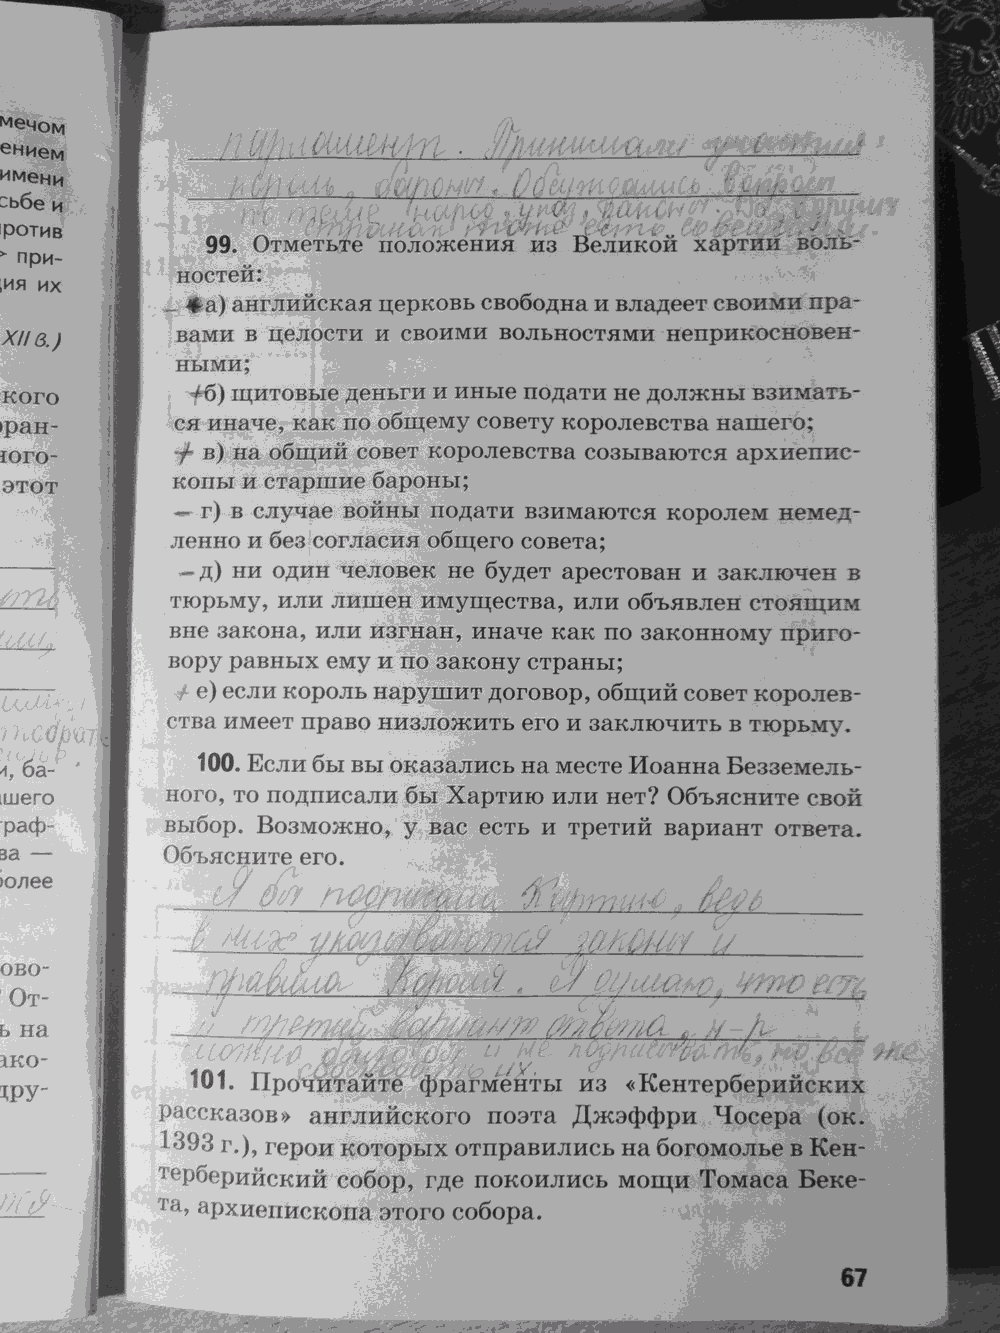 мечом
ением
имени
сьбе и
против
при-
ция их
XII в.)
ского
фран-
ного-
этот
и, ба-
ашего
граф-
ва —
более
ово-
От-
ь на
ако-
дру-
парламент. Принимали участие:
король, бароны. Обсуждались вопросы
по теме народ, указ, законы
странах тоже есть
99. Отметьте положения из Великой хартии воль-
ностей:
– а) английская церковь свободна и владеет своими пра-
вами в целости и своими вольностями неприкосновен-
ными;
+б) щитовые деньги и иные подати не должны взимать-
ся иначе, как по общему совету королевства нашего;
+ в) на общий совет королевства созываются архиепис-
копы и старшие бароны;
– г) в случае войны подати взимаются королем немед-
ленно и без согласия общего совета;
– д) ни один человек не будет арестован и заключен в
тюрьму, или лишен имущества, или объявлен стоящим
вне закона, или изгнан, иначе как по законному приго-
вору равных ему и по закону страны;
+ е) если король нарушит договор, общий совет королев-
ства имеет право низложить его и заключить в тюрьму.
100. Если бы вы оказались на месте Иоанна Безземель-
ного, то подписали бы Хартию или нет? Объясните свой
выбор. Возможно, у вас есть и третий вариант ответа.
Объясните его.
Я бы подписала Хартию, ведь
в них указываются законы и
правила Короля. Я думаю, что есть
и третий вариант ответа, н-р
можно было бы и не подписывать, но все же
соблюдать их.
101. Прочитайте фрагменты из «Кентерберийских
рассказов» английского поэта Джэффри Чосера (ок.
1393 г.), герои которых отправились на богомолье в Кен-
терберийский собор, где покоились мощи Томаса Беке-
та, архиепископа этого собора.
67